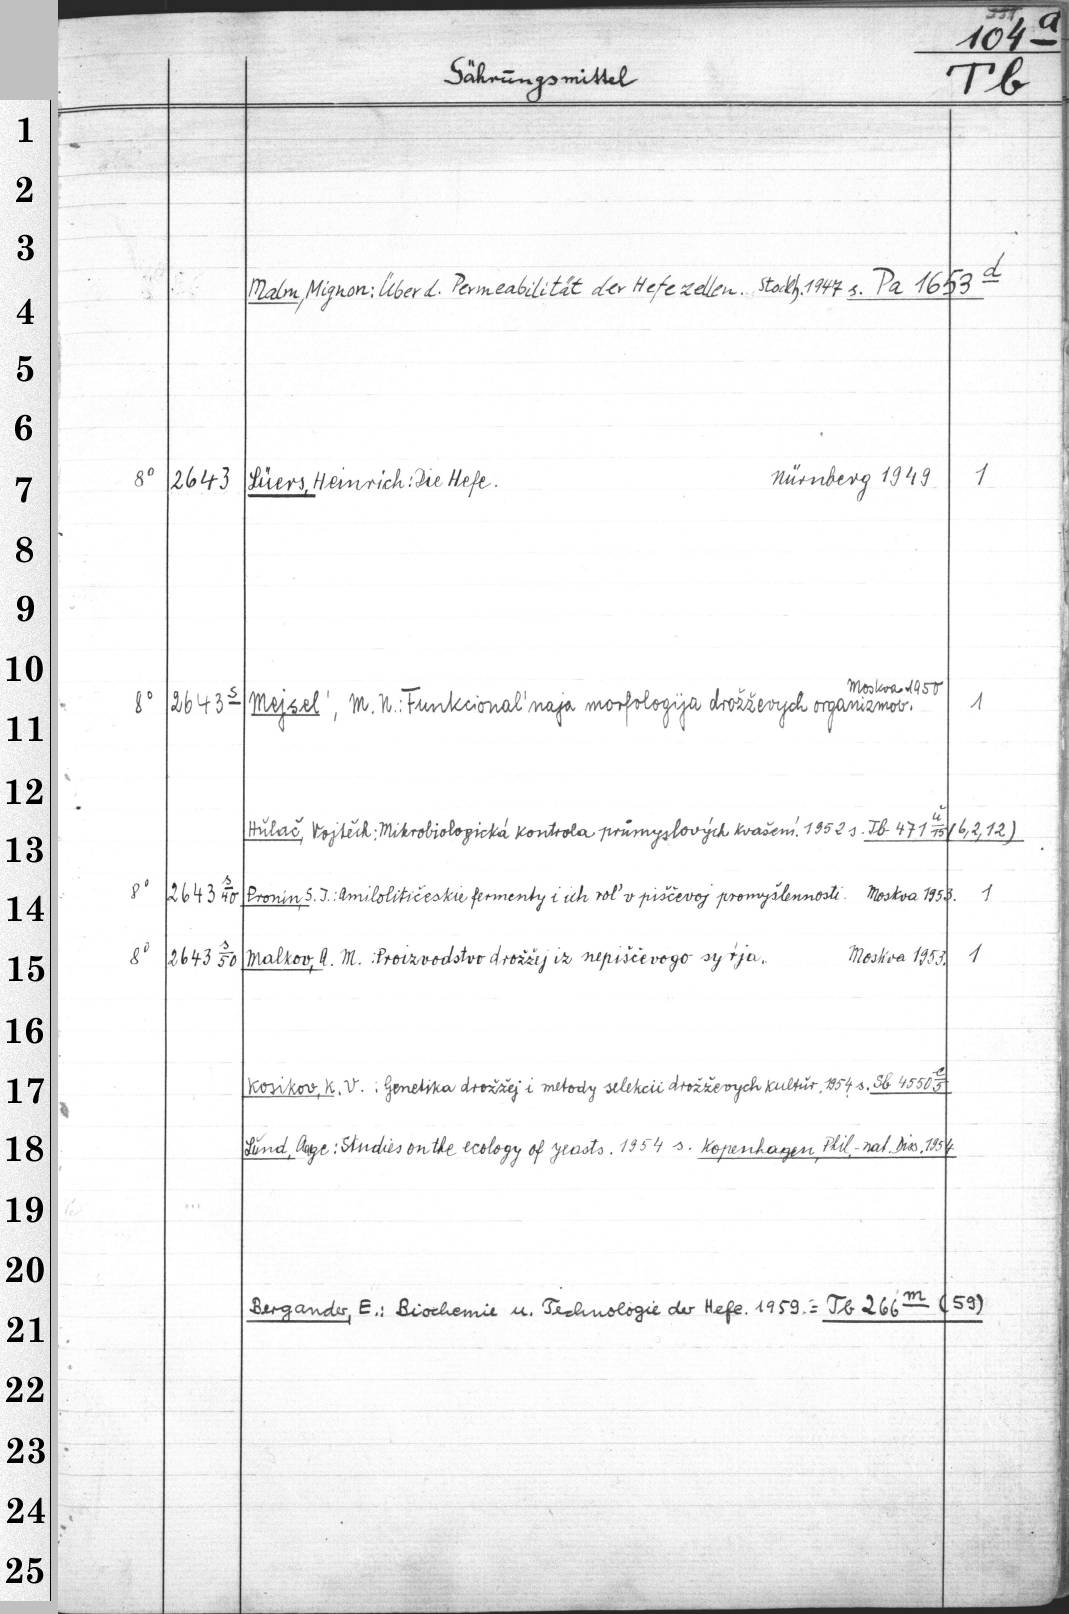 104 a
Gährungsmittel
Tb
1
2
3
4 Malm, Mignon: Über d. Permeabilität der Hefezellen. Stockh. 1947 s. Pa 1653 d
5
6
7 8° 2643 Lüers, Heinrich: Die Hefe. Nürnberg 1949 1
8
9
10
Moskva 1950
11 8° 2643 s Mejsel', M. N.: Funkcional'naja morfologija drožževych organizmov. 1
12
13 Hulač, Vojtěch: Mikrobiologická kontrola průmyslových kvašení. 1952 s. Tb 471 ü/15 (6,2,12)
14 8° 2643 s/40 Pronin, S. I.: Amilolitičeskie fermenty i ich rol' v piščevoj promyšlennosti. Moskva 1953. 1
15 8° 2643 s/50 Malkov, A. M.: Proizvodstvo drožžej iz nepiščevogo syr'ja. Moskva 1953. 1
16
17 Kosikov, K. V.: Genetika drožžej i metody selekcii drožževych kultur. 1954 s. Sb 4550 e/5
18 Lund, Aage: Studies on the ecology of yeasts. 1954 s. Kopenhagen, Phil.-nat. Diss. 1954.
19
20
21 Bergander, E.: Biochemie u. Technologie der Hefe. 1959. = Tb 266 m (59)
22
23
24
25